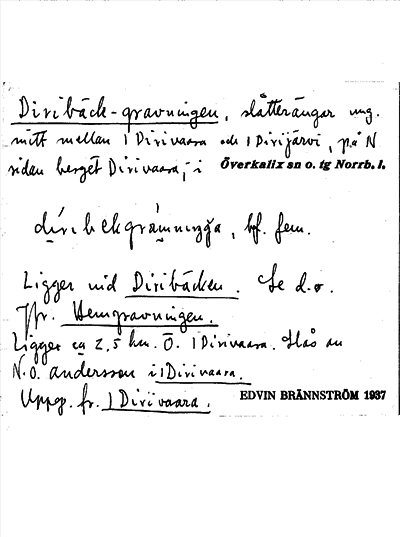 Diribäck-gravningen, slåtterängar ung.
mitt mellan 1 Dirivaara och 1 Dirijärvi, på N
sidan berget Dirivaara, i Överkalix sn o. tg Norrb. l.
bf. fem.
Ligger vid Diribäcken. Se d.o.
Jfr. Hemgravningen.
Ligger ca 2,5 km. Ö. 1 Dirivaara. Slås av
N.O. Andersson i 1 Dirivaara.
Uppg. fr. 1 Dirivaara.
EDVIN BRÄNNSTRÖM 1937